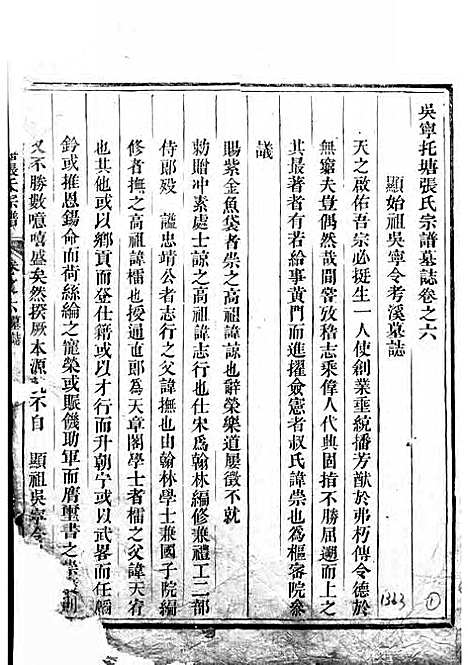 吳寧托塘張氏宗譜墓誌卷之六
顯始祖吳寧令考溪墓誌
天之啟佑吾宗必挺生一人使創業垂統播芳猷於弗朽傳令德於
無窮夫豈偶然哉間嘗攷稽志乘偉人代典固指不勝屈遡而上之
其最著者有若給事黃門而進擢僉憲者叔氏諱崇也爲樞密院參
議
賜紫金魚袋者崇之高祖諱諒也辭榮樂道屢徵不就
勅贈冲素處士諒之高祖諱志行也仕宋爲翰林編修兼禮工二部
侍郎殁 謚忠靖公者志行之父諱撫也由翰林學士兼國子院編
修者撫之高祖諱檑也授通直郎爲天章閣學士者檑之父諱天齊
也其他或以鄉貢而登仕籍或以才行而升朝宁或以武畧而任樞
鈐或推恩錫命而荷絲綸之寵榮或賑饑助軍而膺璽書之崇
又不勝數噫嘻盛矣然揆厥本源 不自 顯祖吳寧令
張氏宗譜 卷之六 墓誌
1363
1